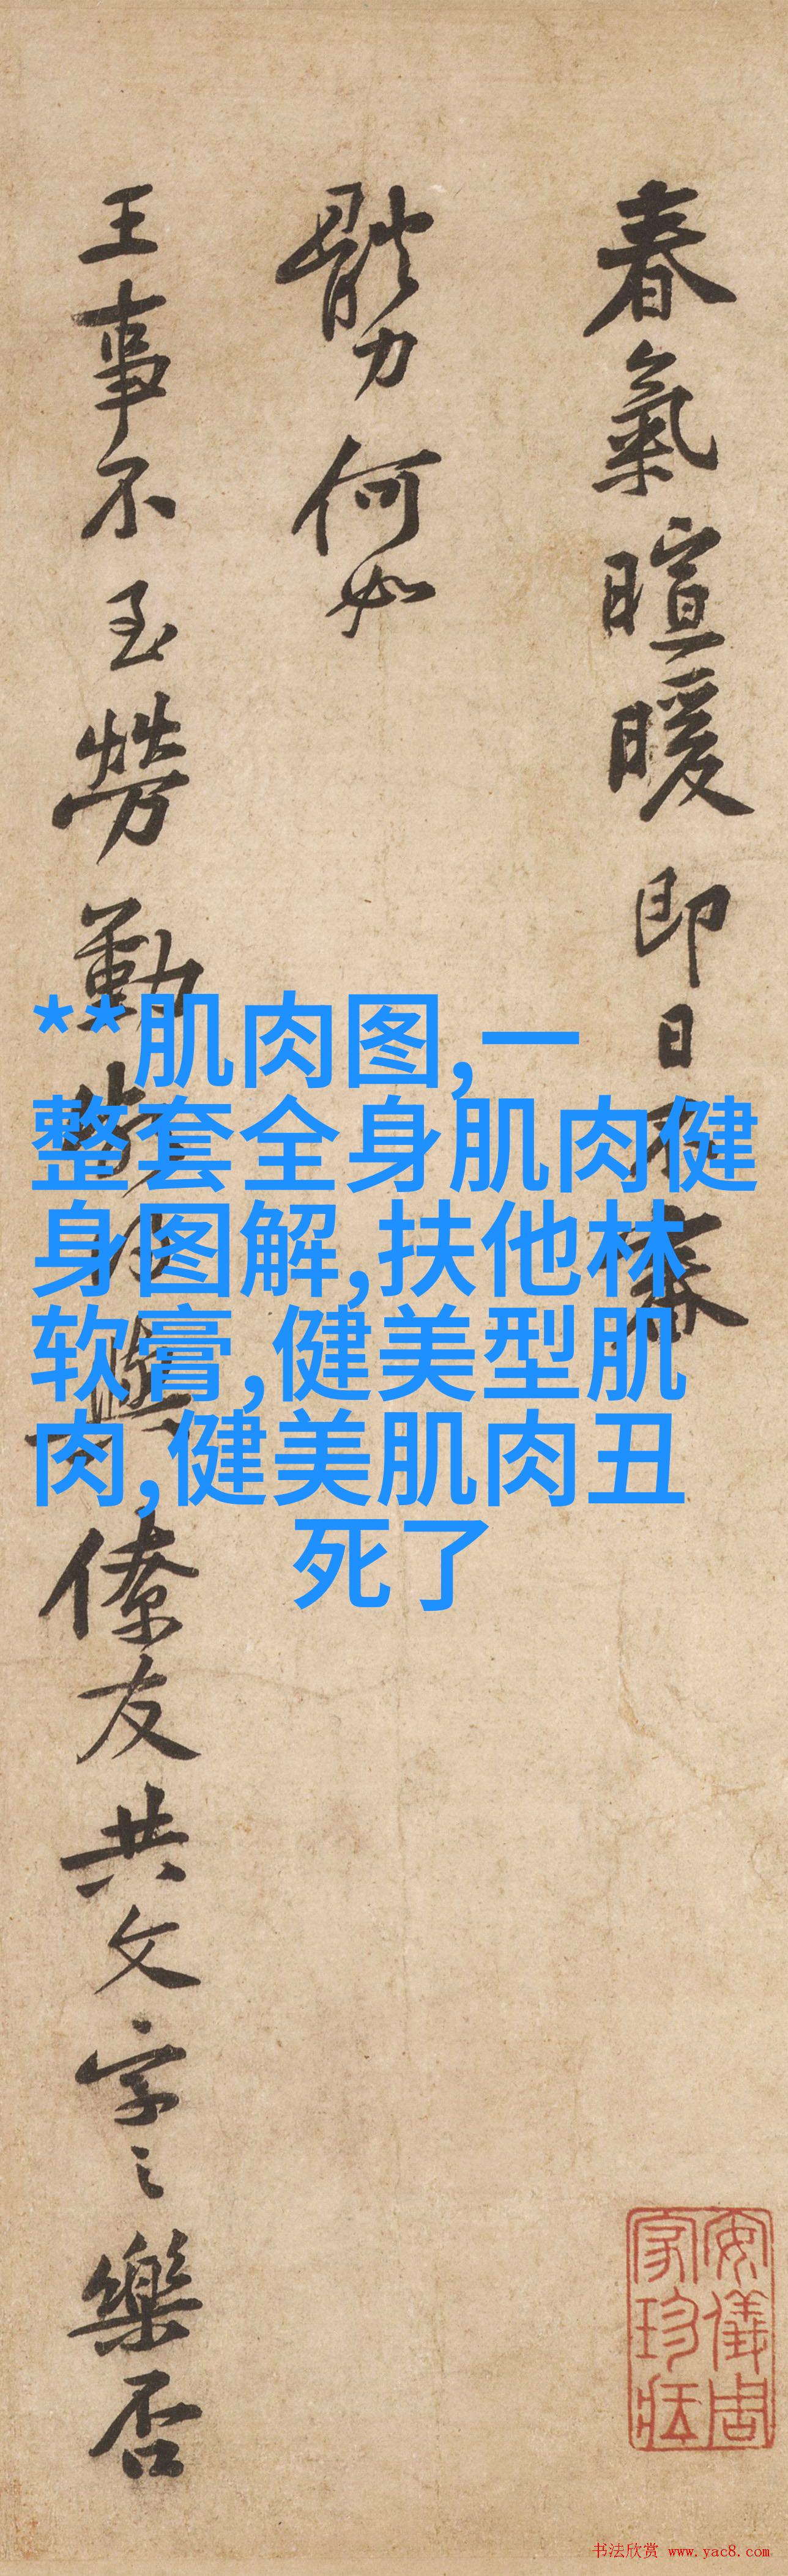 春氣暄暖即日不審
體力何如
王事不至勞勤
僚友共文字之樂否
**肌肉图,一
整套全身肌肉健
身图解,扶他林
软膏,健美型肌
肉,健美肌肉丑
死了
安儀周
家珍藏
书法欣赏 www.yac8.com